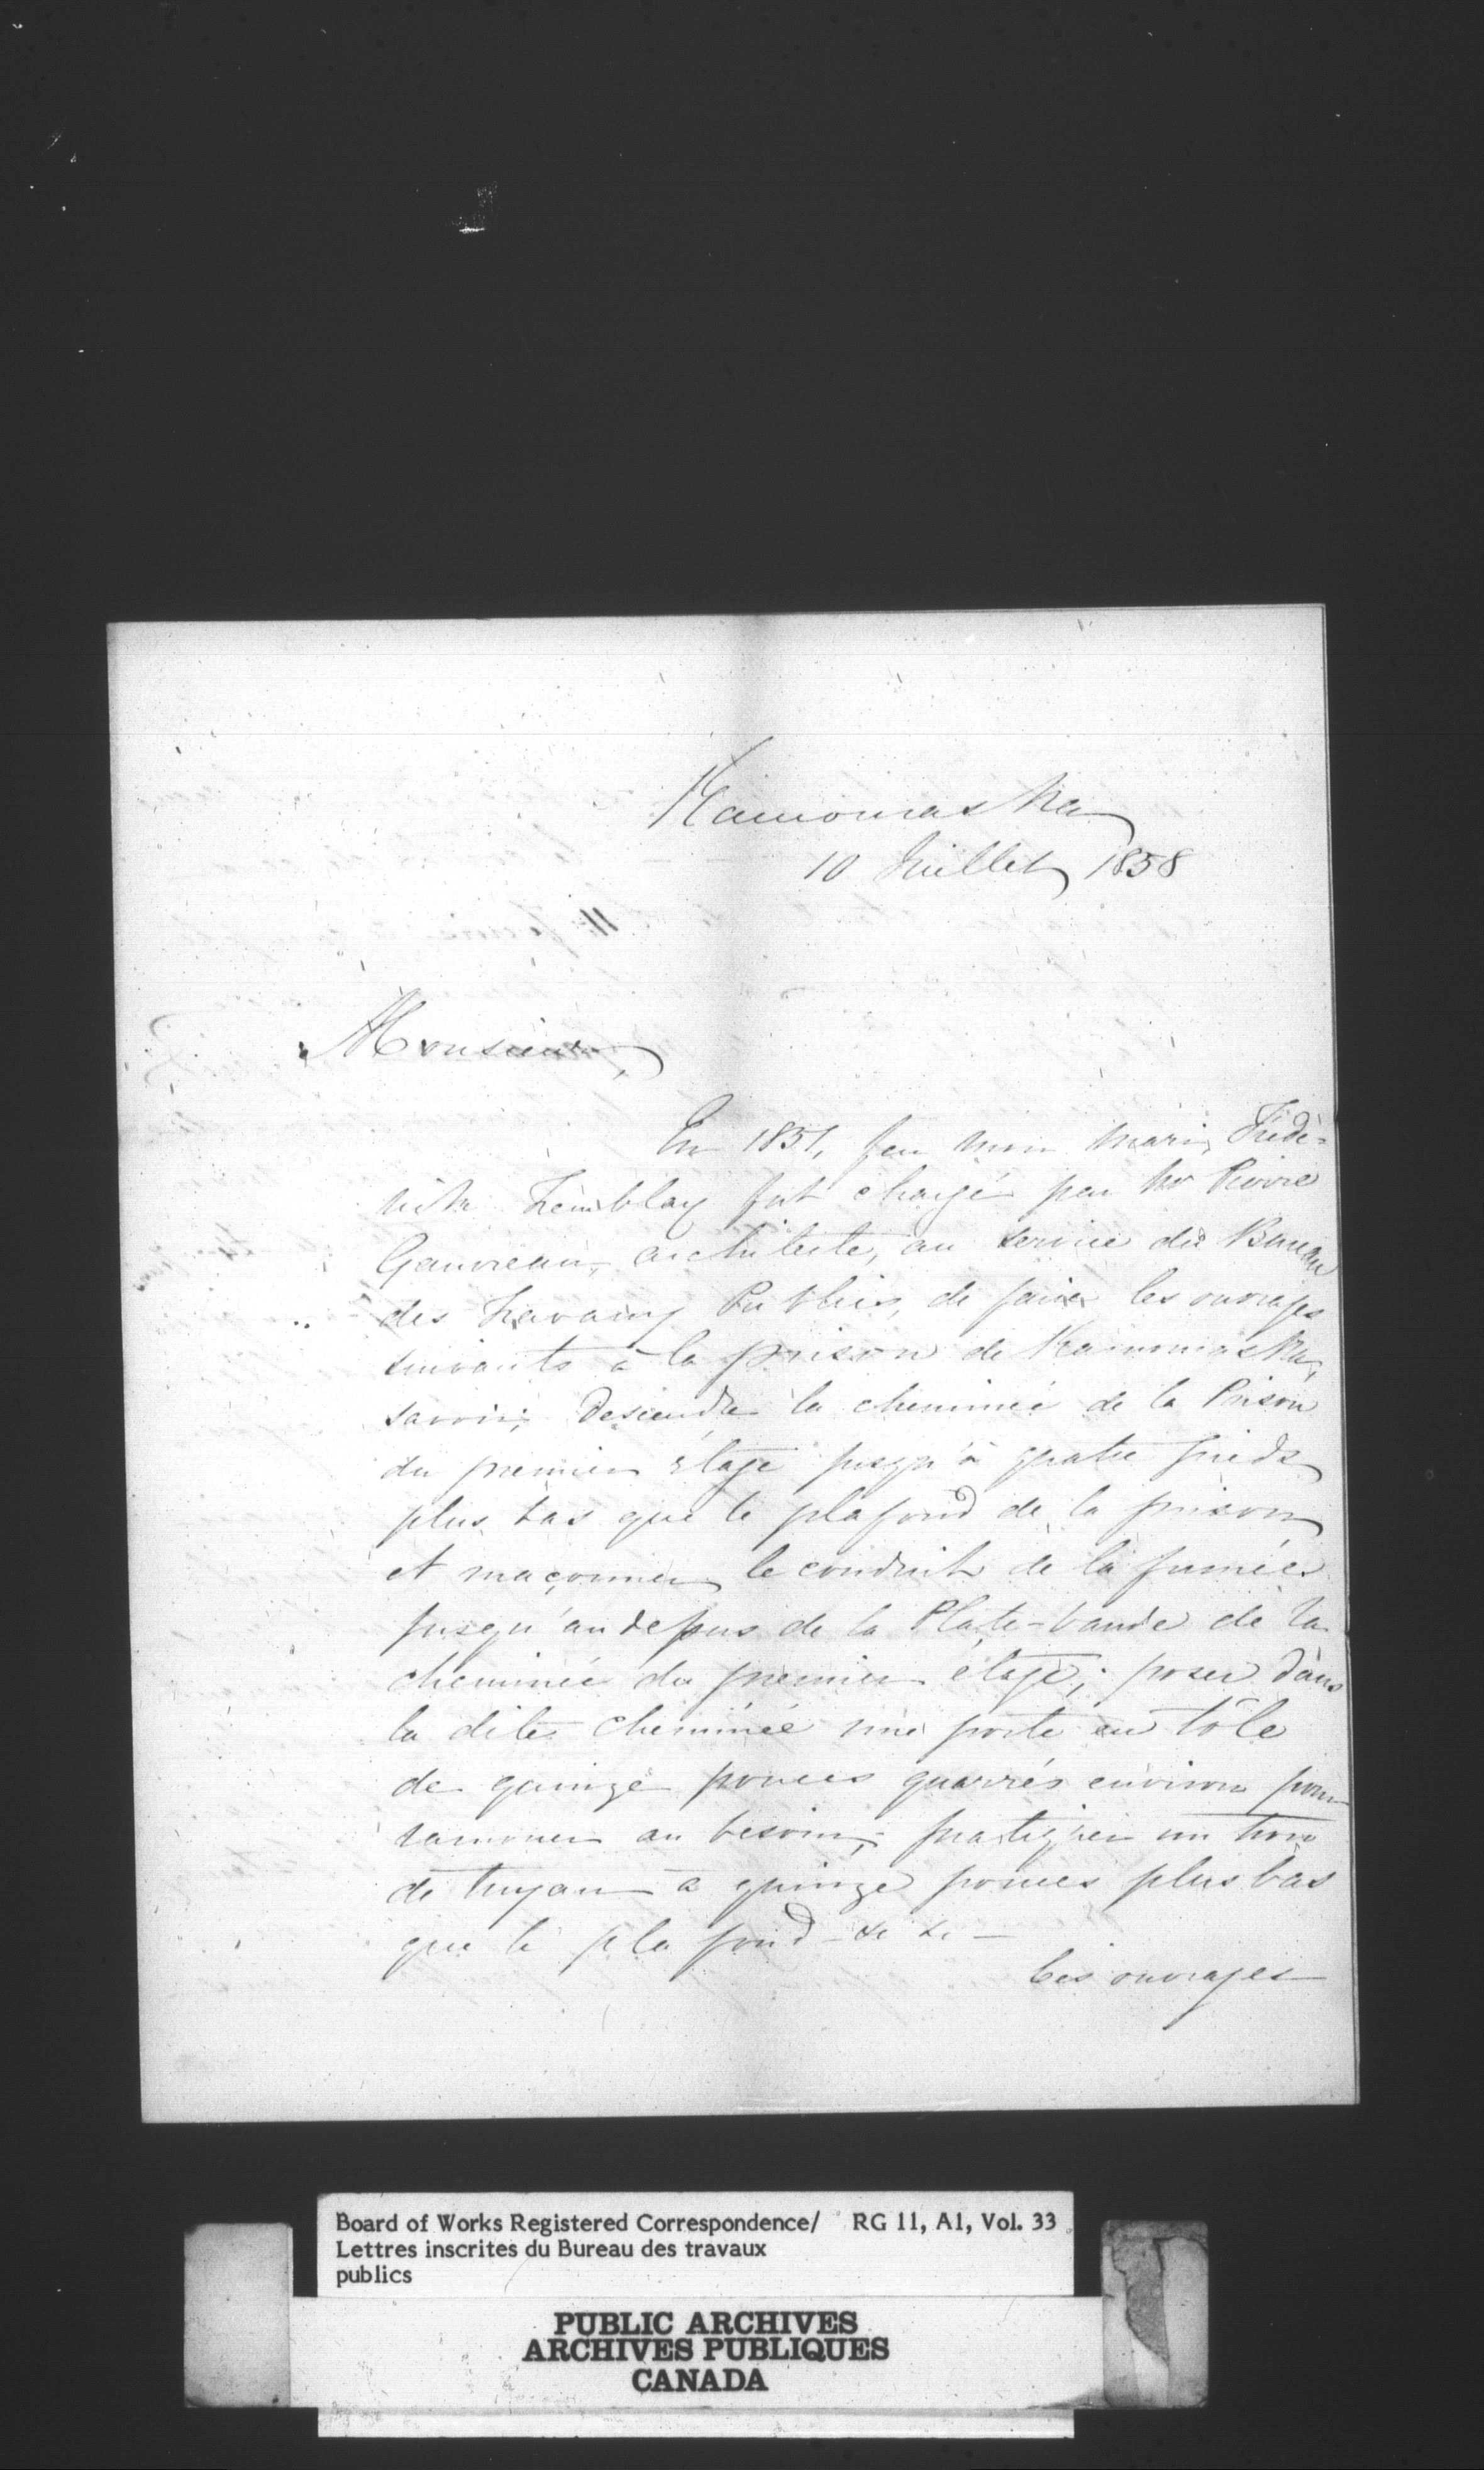 Kamouraska
10 Juillet 1858
Monsieur,
En 1851, feu mon mari, Frédé-
rick Tremblay fut chargé par Mr Pierre
Gauvreau, architecte, au service du Bureau
des Travaux Publics, de faire les ouvrages
suivants à la prison de Kamouraska,
savoir; Descendre la cheminée de la Prison
du premier étage jusqu'à quatre pieds
plus bas que le plafond de la prison
et maçonner le conduit de la fumée
jusqu'au dessus de la Plate-bande de la
cheminée du premier étage; poser dans
la dite cheminée une porte en tôle
de quinze pouces quarrés environ pour
ramoner au besoin; pratiquer un trou
de tuyau à quinze pouces plus bas
que le plafond - &c &c -
Ces ouvrages
Board of Works Registered Correspondence/ RG 11, A1, Vol. 33
Lettres inscrites du Bureau des travaux
publics
PUBLIC ARCHIVES
ARCHIVES PUBLIQUES
CANADA